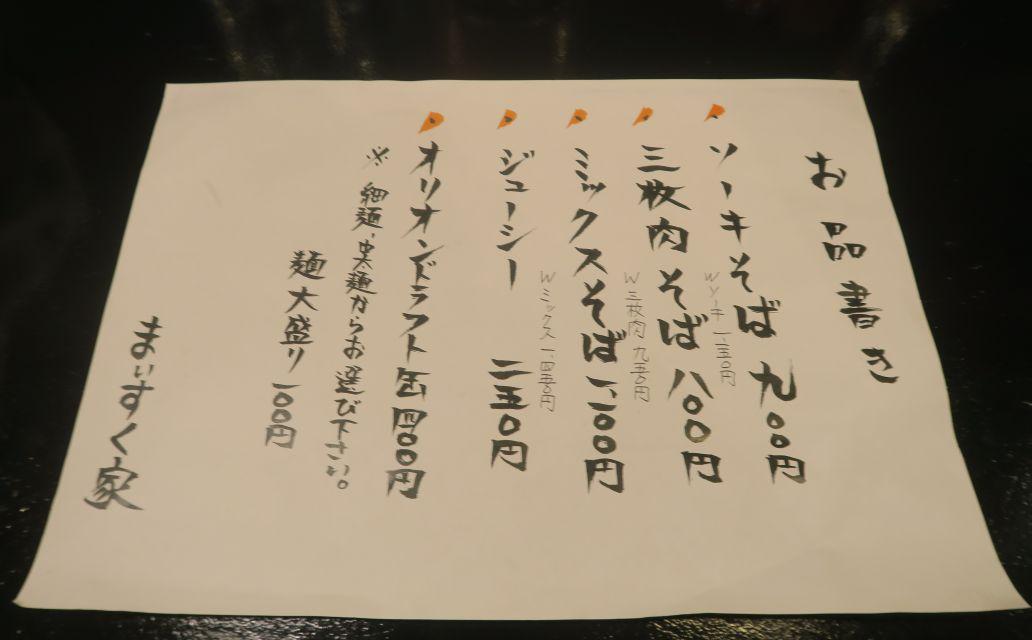 お品書き
ソーキそば 九〇〇円
Wソーキ 一、一五〇円
三枚肉そば 八〇〇円
W三枚肉 九五〇円
ミックスそば 一、一〇〇円
Wミックス 一、四五〇円
ジューシー 二五〇円
オリオンドラフト缶 四〇〇円
※ 細麺・中太麺からお選び下さい。
麺大盛り 一〇〇円
まいすく家